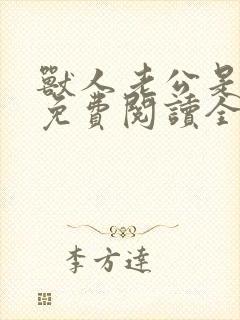 獸人老公是
免費閱讀全
李方達